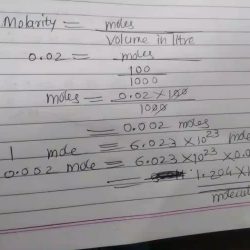 Molarity = moles
Volume in litre
0.02 = moles
100
1000
moles = 0.02 × 100
1000
= 0.002 moles
1 mole = 6.023 × 10²³
0.002 mole = 6.023 × 10²³ × 0.0
1.204 ×